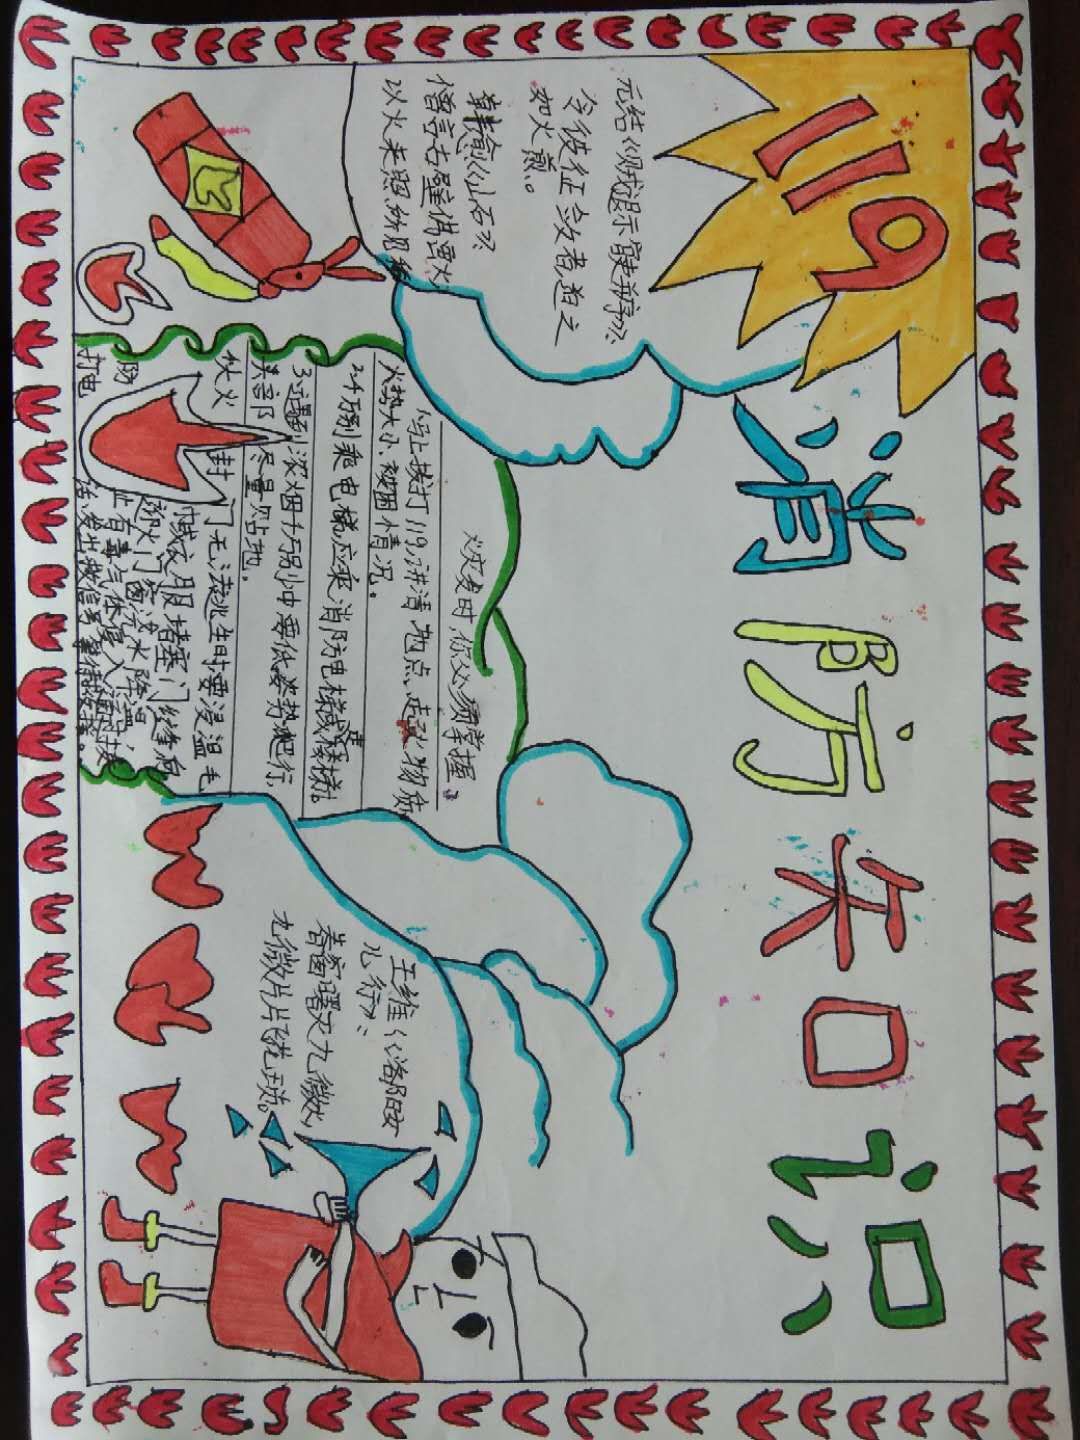 119
消防知识
元结《贼退示官吏并序》:
今彼征敛者,迫之
如火煎。
韩愈《山石》
僧言古壁佛画
以火来照所见稀
火灾发时,你必须掌握。
马上拨打119,讲清地点、起火物质
火势大小、被困情况。
2千万别乘电梯应乘消防电梯或楼梯。
3遇到浓烟千万别冲要低姿势爬行,
头部尽量贴地。
封门无法逃生时要浸湿毛
巾或衣服堵塞门缝,泼
水降温
止有毒气体侵入
打电
话、发出救信号等待救援。
王维《洛阳女
儿行》:
春窗曙灭九微火,
九微片片飞花琐。